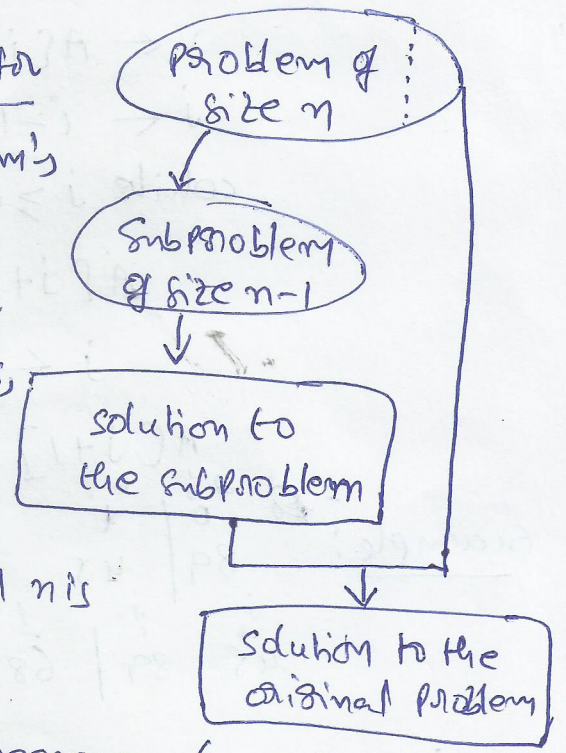 for
problem of
size n
m's
Subproblem
of size n-1
solution to
the subproblem
n is
solution to the
original problem